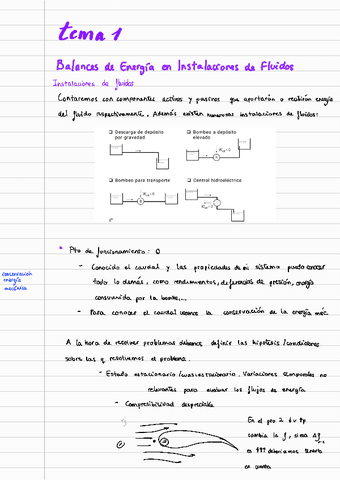 tema 1
Balances de Energía en Instalaciones de Fluidos
Instalaciones de fluidos
Contaremos con componentes activos y pasivos que aportarán o recibirán energía
del fluido respectivamente. Además existen numerosas instalaciones de fluidos:
Descarga de depósito por gravedad
Bombeo a depósito elevado
Bombeo para transporte
Central hidroeléctrica
* Pto de funcionamiento: Q
- Conocido el caudal y las propiedades de mi sistema puedo conocer
todo lo demás, como rendimientos, diferencias de presión, energía
consumida por la bomba,...
conservación
energía
mecánica
- Para conocer el caudal usamos la conservación de la energía mec.
A la hora de resolver problemas debemos definir las hipótesis/condiciones
sobre las q resolvemos el problema.
- Estado estacionario/cuasiestacionario. Variaciones temporales no
relevantes para evaluar los flujos de energía
- Compresibilidad despreciable
En el pto 2 
cambia la
debíamos tenerlo
en cuenta